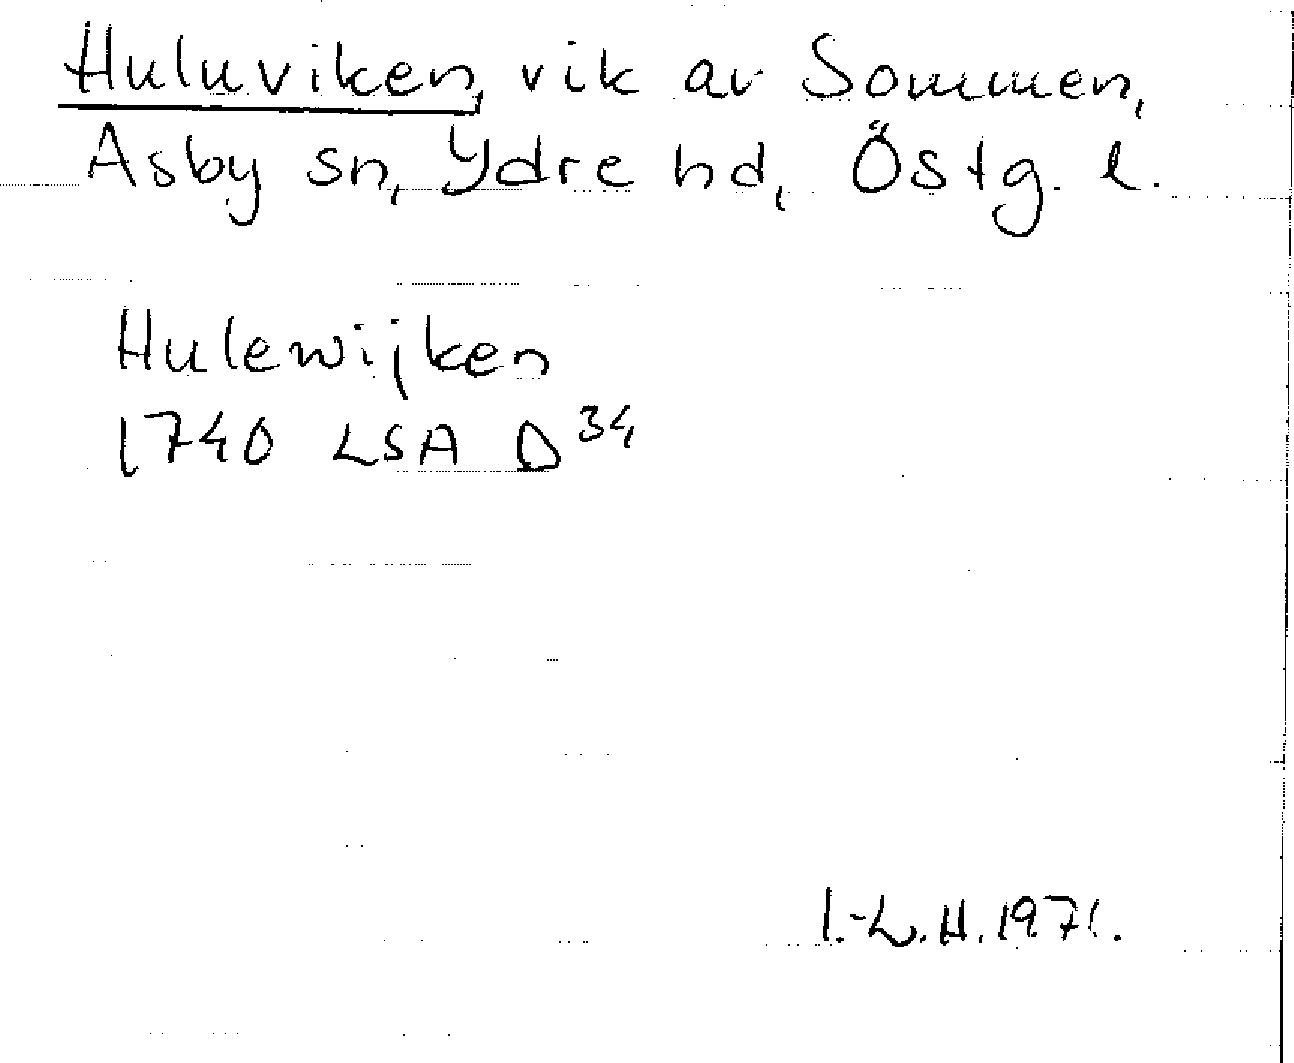 Huluviken, vik av Sommen,
Asby sn, Ydre hd, Östg. l.
Hulewijken
1740 LSA D 34
I.-L. H. 1971.